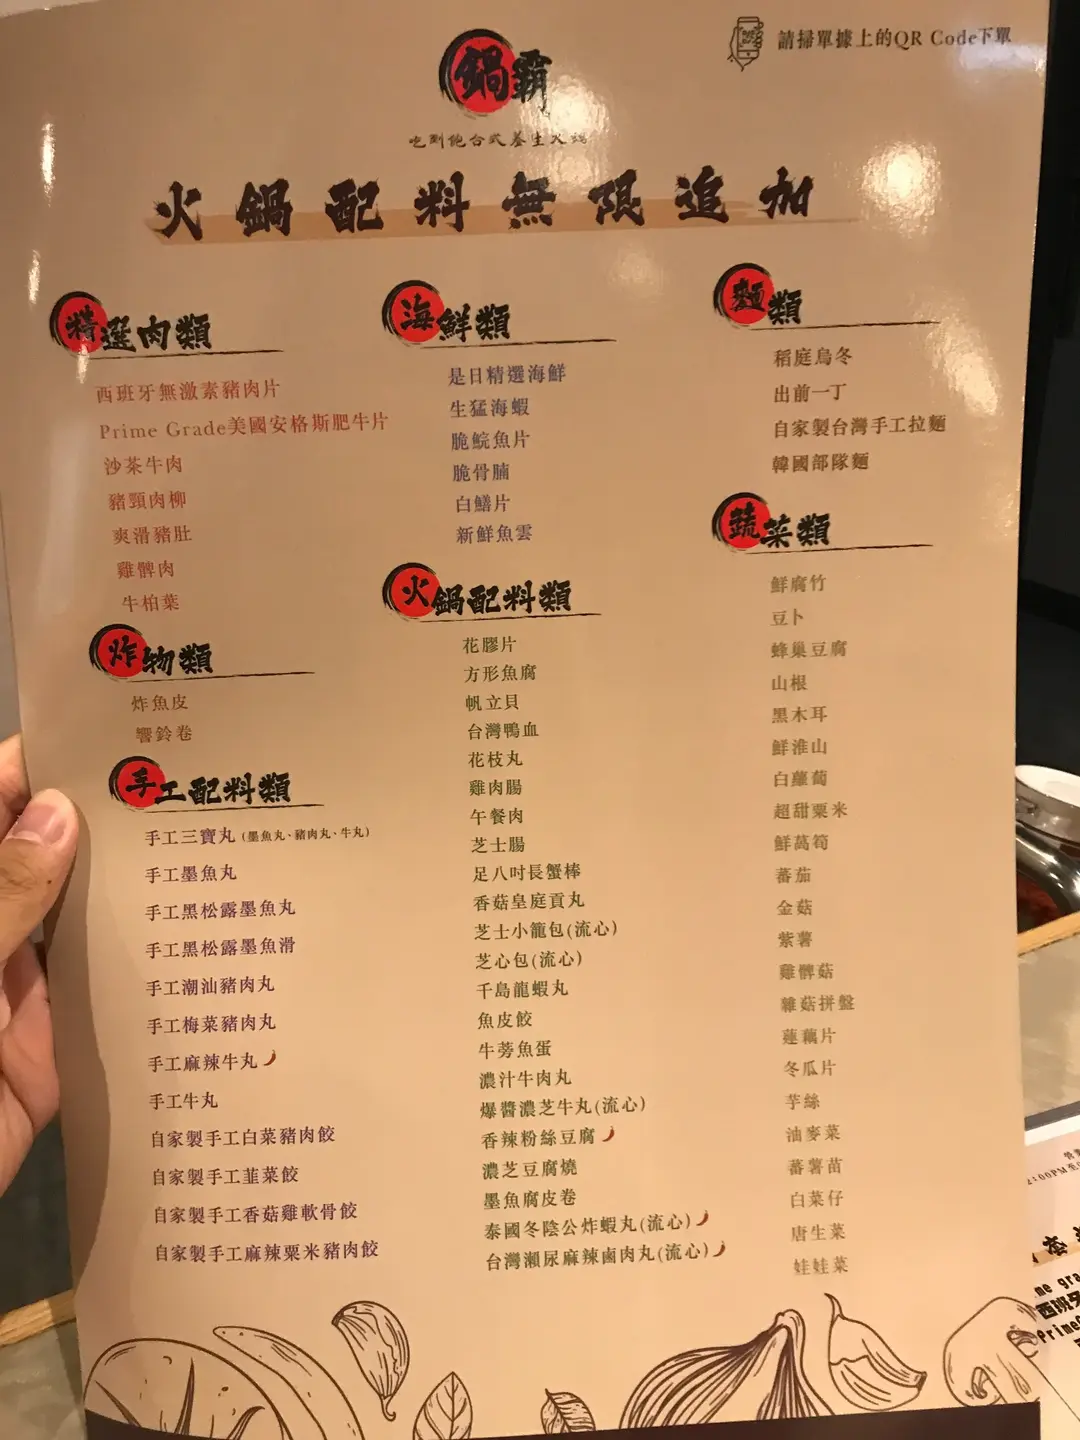 請掃單據上的QR Code下單
鍋霸
吃到飽台式養生火鍋
火鍋配料無限追加
精選肉類
西班牙無激素豬肉片
Prime Grade美國安格斯肥牛片
沙茶牛肉
豬頸肉柳
爽滑豬肚
雞髀肉
牛柏葉
炸物類
炸魚皮
響鈴卷
手工配料類
手工三寶丸(墨魚丸、豬肉丸、牛丸)
手工墨魚丸
手工黑松露墨魚丸
手工黑松露墨魚滑
手工潮汕豬肉丸
手工梅菜豬肉丸
手工麻辣牛丸
手工牛丸
自家製手工白菜豬肉餃
自家製手工韮菜餃
自家製手工香菇雞軟骨餃
自家製手工麻辣粟米豬肉餃
海鮮類
是日精選海鮮
生猛海蝦
脆鯇魚片
脆骨腩
白鱔片
新鮮魚雲
火鍋配料類
花膠片
方形魚腐
帆立貝
台灣鴨血
花枝丸
雞肉腸
午餐肉
芝士腸
足八吋長蟹棒
香菇皇庭貢丸
芝士小籠包(流心)
芝心包(流心)
千島龍蝦丸
魚皮餃
牛蒡魚蛋
濃汁牛肉丸
爆醬濃芝牛丸(流心)
香辣粉絲豆腐
濃芝豆腐燒
墨魚腐皮卷
泰國冬陰公炸蝦丸(流心)
台灣瀨尿麻辣鹵肉丸(流心)
麵類
稻庭烏冬
出前一丁
自家製台灣手工拉麵
韓國部隊麵
蔬菜類
鮮腐竹
豆卜
蜂巢豆腐
山根
黑木耳
鮮淮山
白蘿蔔
超甜粟米
鮮萵筍
蕃茄
金菇
紫薯
雞髀菇
雜菇拼盤
蓮藕片
冬瓜片
芋絲
油麥菜
蕃薯苗
白菜仔
唐生菜
娃娃菜
2:00PM
me gra
西班牙
Prime